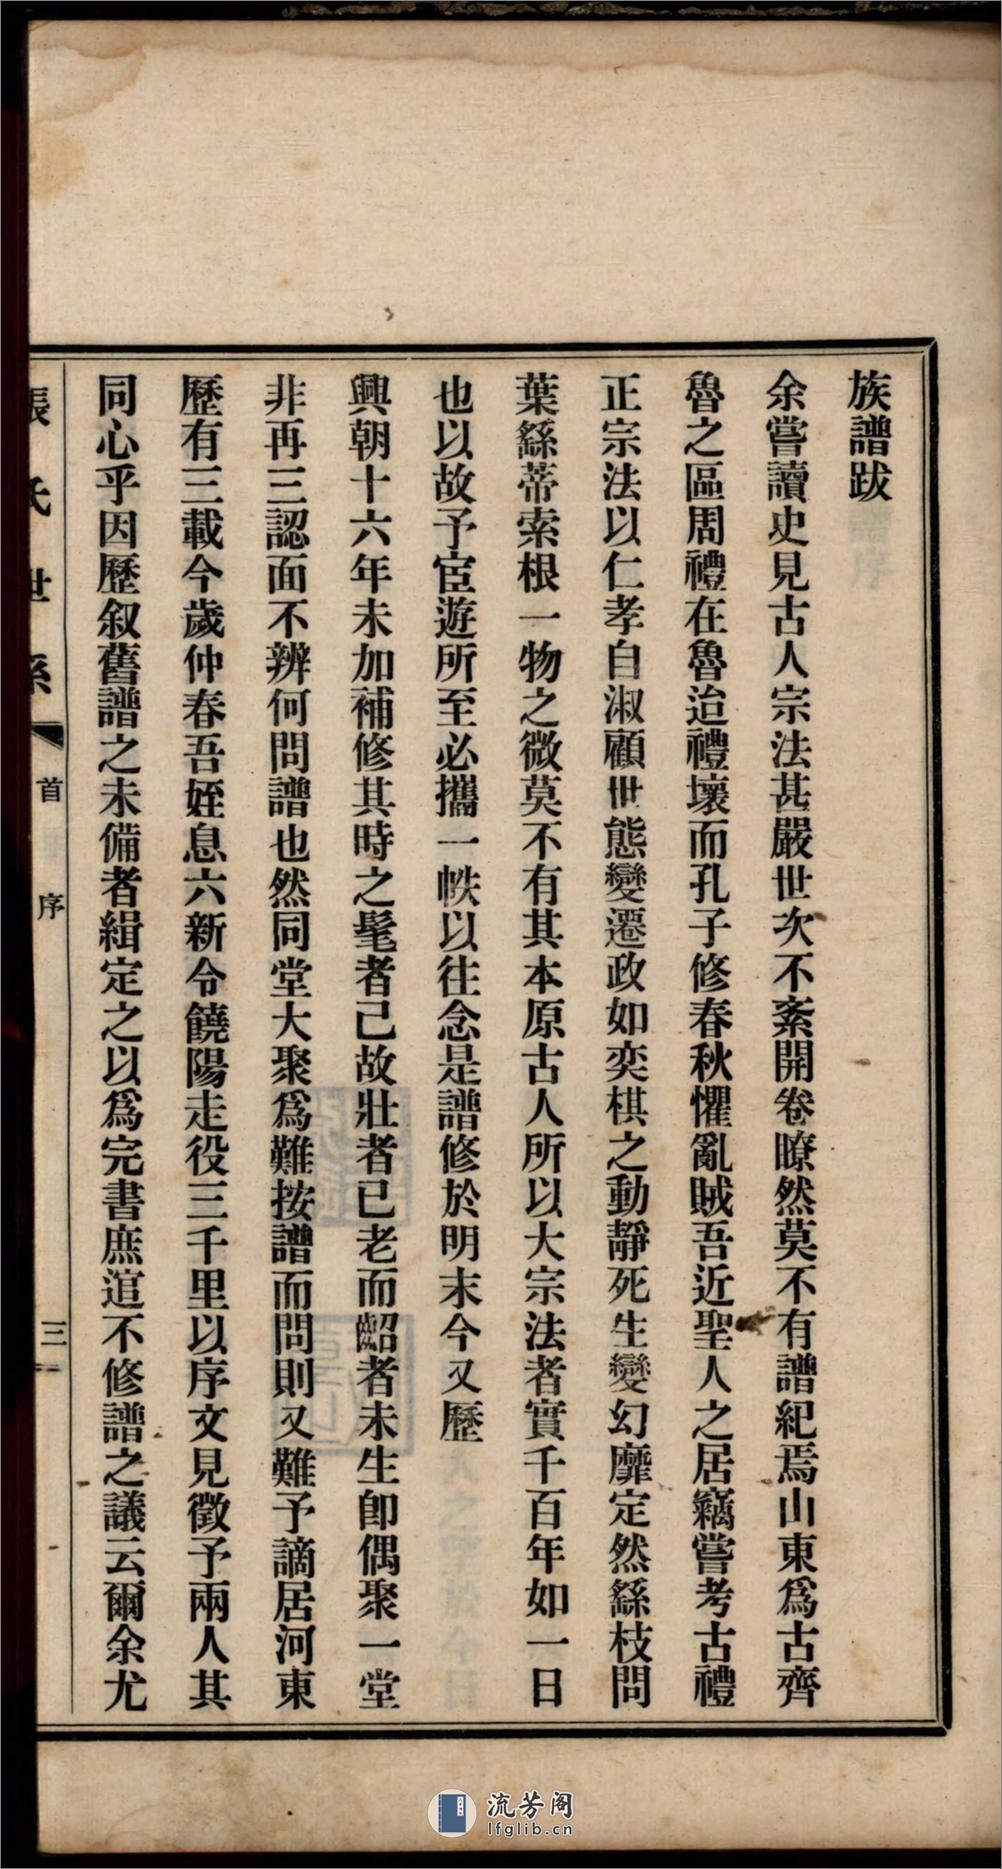 族譜跋
余嘗讀史見古人宗法甚嚴世次不紊開卷瞭然莫不有譜紀焉山東爲古齊
魯之區周禮在魯迨禮壞而孔子修春秋懼亂賊吾近聖人之居竊嘗考古禮
正宗法以仁孝自淑顧世態變遷政如奕棋之動靜死生變幻靡定然繇枝問
葉繇蒂索根一物之微莫不有其本原古人所以大宗法者實千百年如一日
也以故予宦遊所至必攜一帙以往念是譜修於明末今又歷
興朝十六年未加補修其時之髦者已故壯者已老而齠者未生卽偶聚一堂
非再三認面不辨何問譜也然同堂大聚爲難按譜而問則又難予謫居河東
歷有三載今歲仲春吾姪息六新令饒陽走役三千里以序文見徵予兩人其
同心乎因歷叙舊譜之未備者緝定之以爲完書庶逭不修譜之議云爾余尤
張氏世系
首
序
三
流芳阁
lfglib.cn